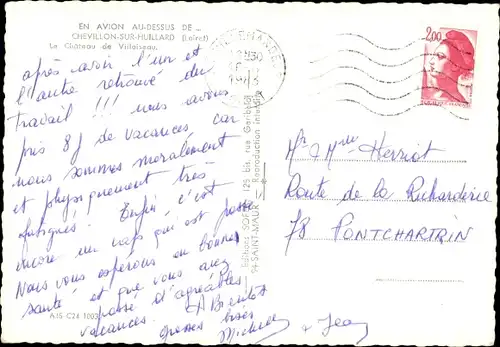 EN AVION AU-DESSUS DE ...
CHEVILLON-SUR-HUILLARD (Loiret)
Le Château de Villoiseau.
après avoir l'un et
l'autre retrouvé du
travail !!! nous avons
pris 8j de vacances, car
nous sommes moralement
et physiquement très
fatigués. Enfin, c'est
encore un cap qui est passé
Nous vous espérons en bonne
santé et que vous avez
passé d'agréables
vacances.
Grosses bises
Michèle & Jean
A.15 C24 1003
Editions SOFER, 125 bis, rue Garibaldi
94-SAINT-MAUR
Reproduction interdite
2,00
Mr & Mme Herriot
Route de la Richarderie
78 PONTCHARTRIN